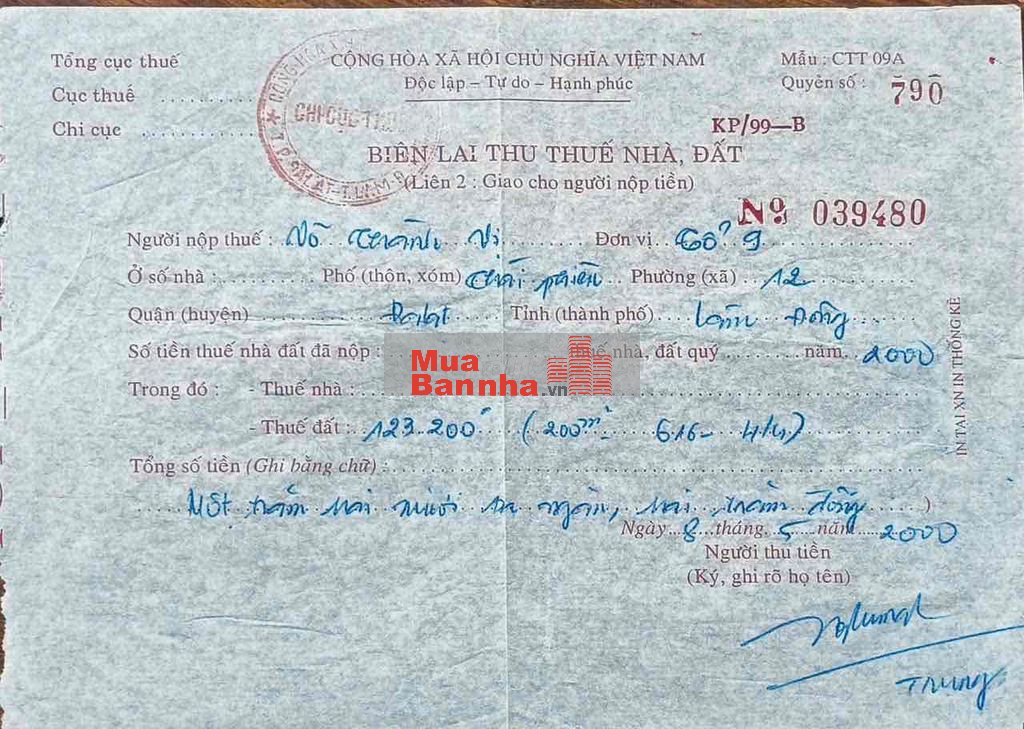 Tổng cục thuế
Cục thuế ..........
Chi cục ............
CHI CỤC THUẾ
CỘNG HÒA XÃ HỘI CHỦ NGHĨA VIỆT NAM
Độc lập – Tự do – Hạnh phúc
Mẫu : CTT 09A
Quyển số : 790
KP/99—B
BIÊN LAI THU THUẾ NHÀ, ĐẤT
(Liên 2 : Giao cho người nộp tiền)
Nº 039480
Người nộp thuế : Võ Thành Vị Đơn vị Tổ 9
Ở số nhà : ............ Phố (thôn, xóm) Thái Phiên Phường (xã) 12
Quận (huyện) Dalat Tỉnh (thành phố) Lâm Đồng
Số tiền thuế nhà đất đã nộp : thuế nhà, đất quý ............ năm 2000
Mua
Bannha.vn
Trong đó : - Thuế nhà :
- Thuế đất : 123.200đ (200m² 616- 4/4)
Tổng số tiền (Ghi bằng chữ) :
Một trăm hai mươi ba ngàn, hai trăm đồng )
Ngày 8 tháng 5 năm 2000
Người thu tiền
(Ký, ghi rõ họ tên)
Trung
IN TẠI XN IN THỐNG KÊ